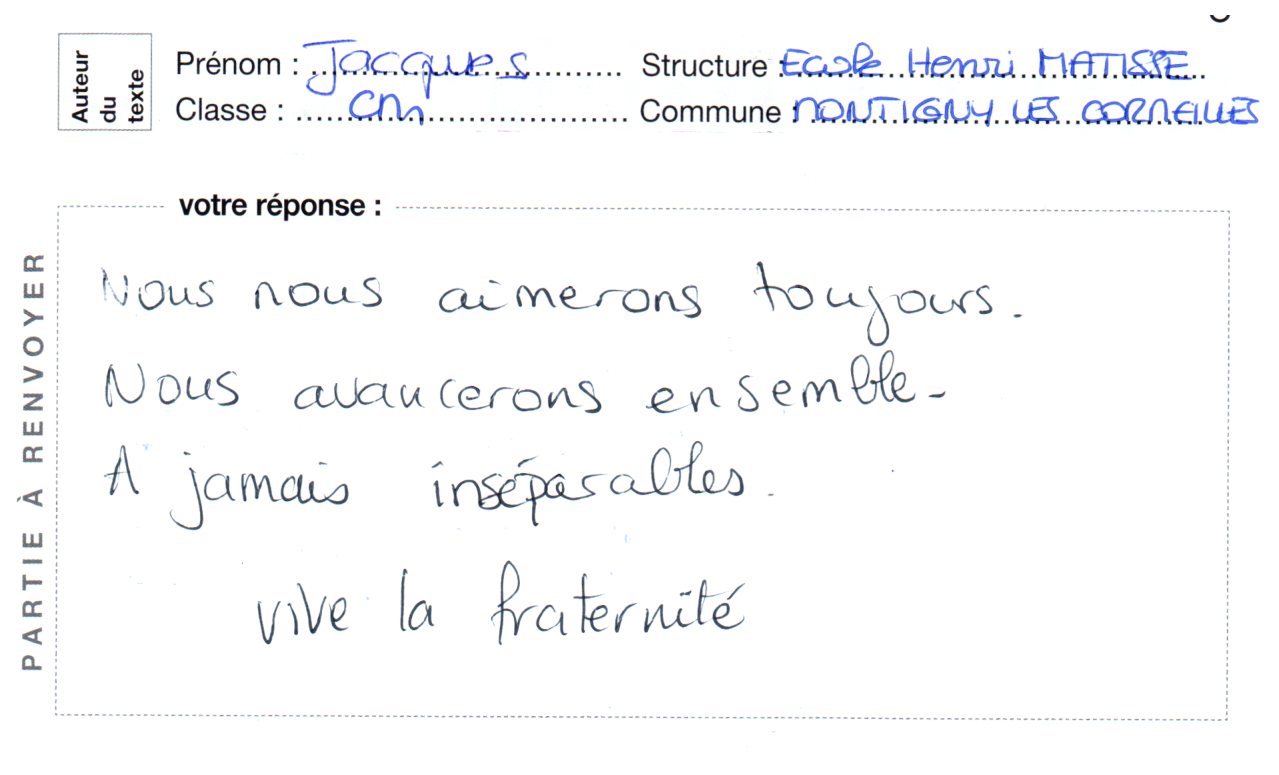 Auteur du texte
Prénom : Jacques Structure : Ecole Henri MATISSE
Classe : CM Commune : MONTIGNY LES CORMEILLES
votre réponse :
PARTIE À RENVOYER
Nous nous aimerons toujours.
Nous avancerons ensemble.
A jamais inséparables.
vive la fraternité